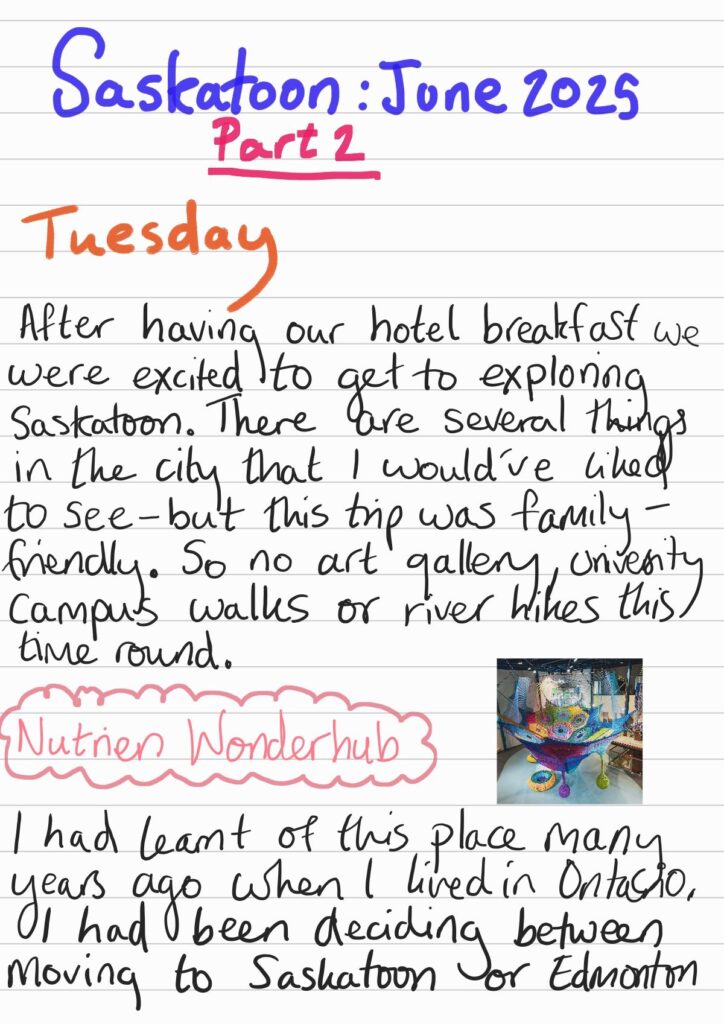 Saskatoon: June 2025
Part 2
Tuesday
After having our hotel breakfast we
were excited to get to exploring
Saskatoon. There are several things
in the city that I would've liked
to see - but this trip was family -
friendly. So no art gallery, university
campus walks or river hikes this
time round.
Nutrien Wonderhub
I had learnt of this place many
years ago when I lived in Ontario,
I had been deciding between
moving to Saskatoon or Edmonton